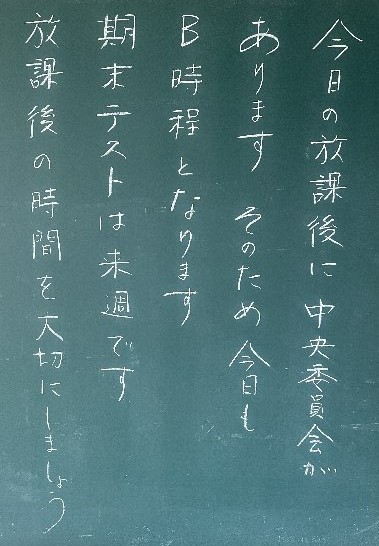 今日の放課後に中央委員会が
あります そのため今日も
B時程となります
期末テストは来週です
放課後の時間を大切にしましょう